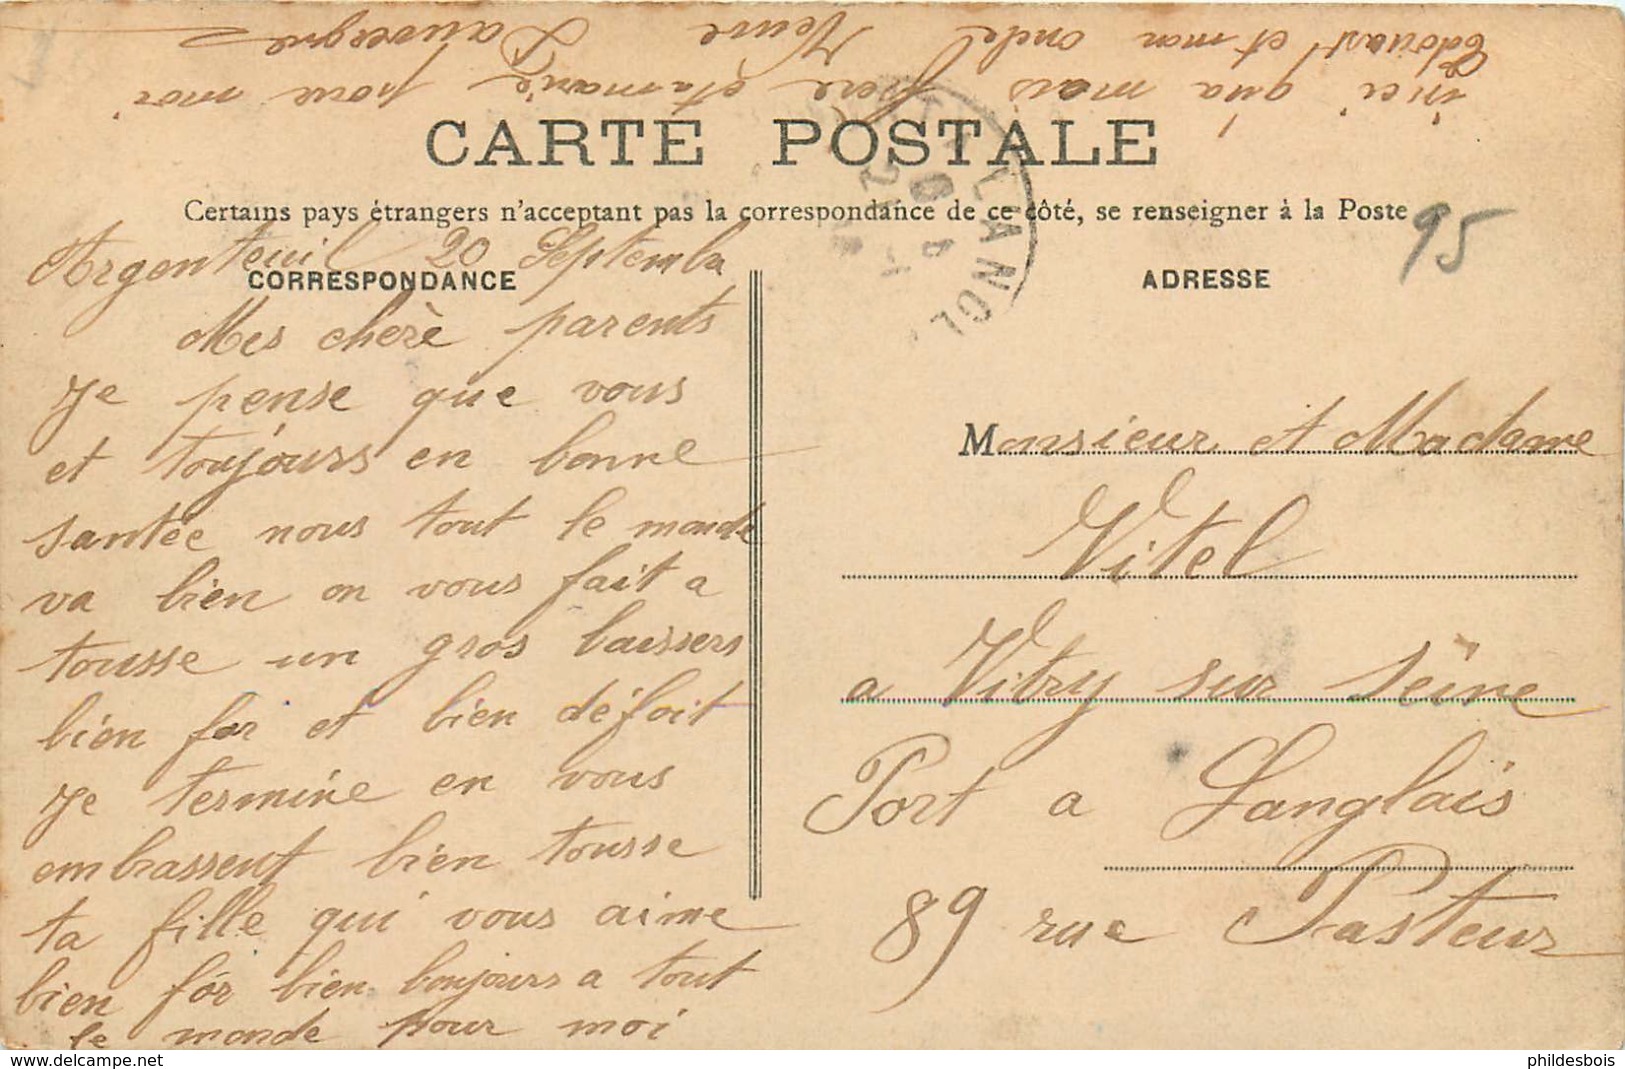 CARTE POSTALE
Certains pays étrangers n'acceptant pas la correspondance de ce côté, se renseigner à la Poste
95
CORRESPONDANCE
ADRESSE
Argenteuil 20 Septembr
Mes cherè parents
Je pense que vous
et toujours en bonne
santée nous tout le monde
va bien on vous fait a
tousse un gros baissers
bien for et bien défoit
Je termine en vous
embrassent bien tousse
ta fille qui vous aime
bien for bien bonjours a tout
le monde pour moi
inci qu'a mais frere et marie pour moi
Edouast et mon oncle
Monsieur et Madame
Vitel
a Vitry sur Seine
Port a Langlais
89 rue Pasteur
delcampe.net
phildesbois